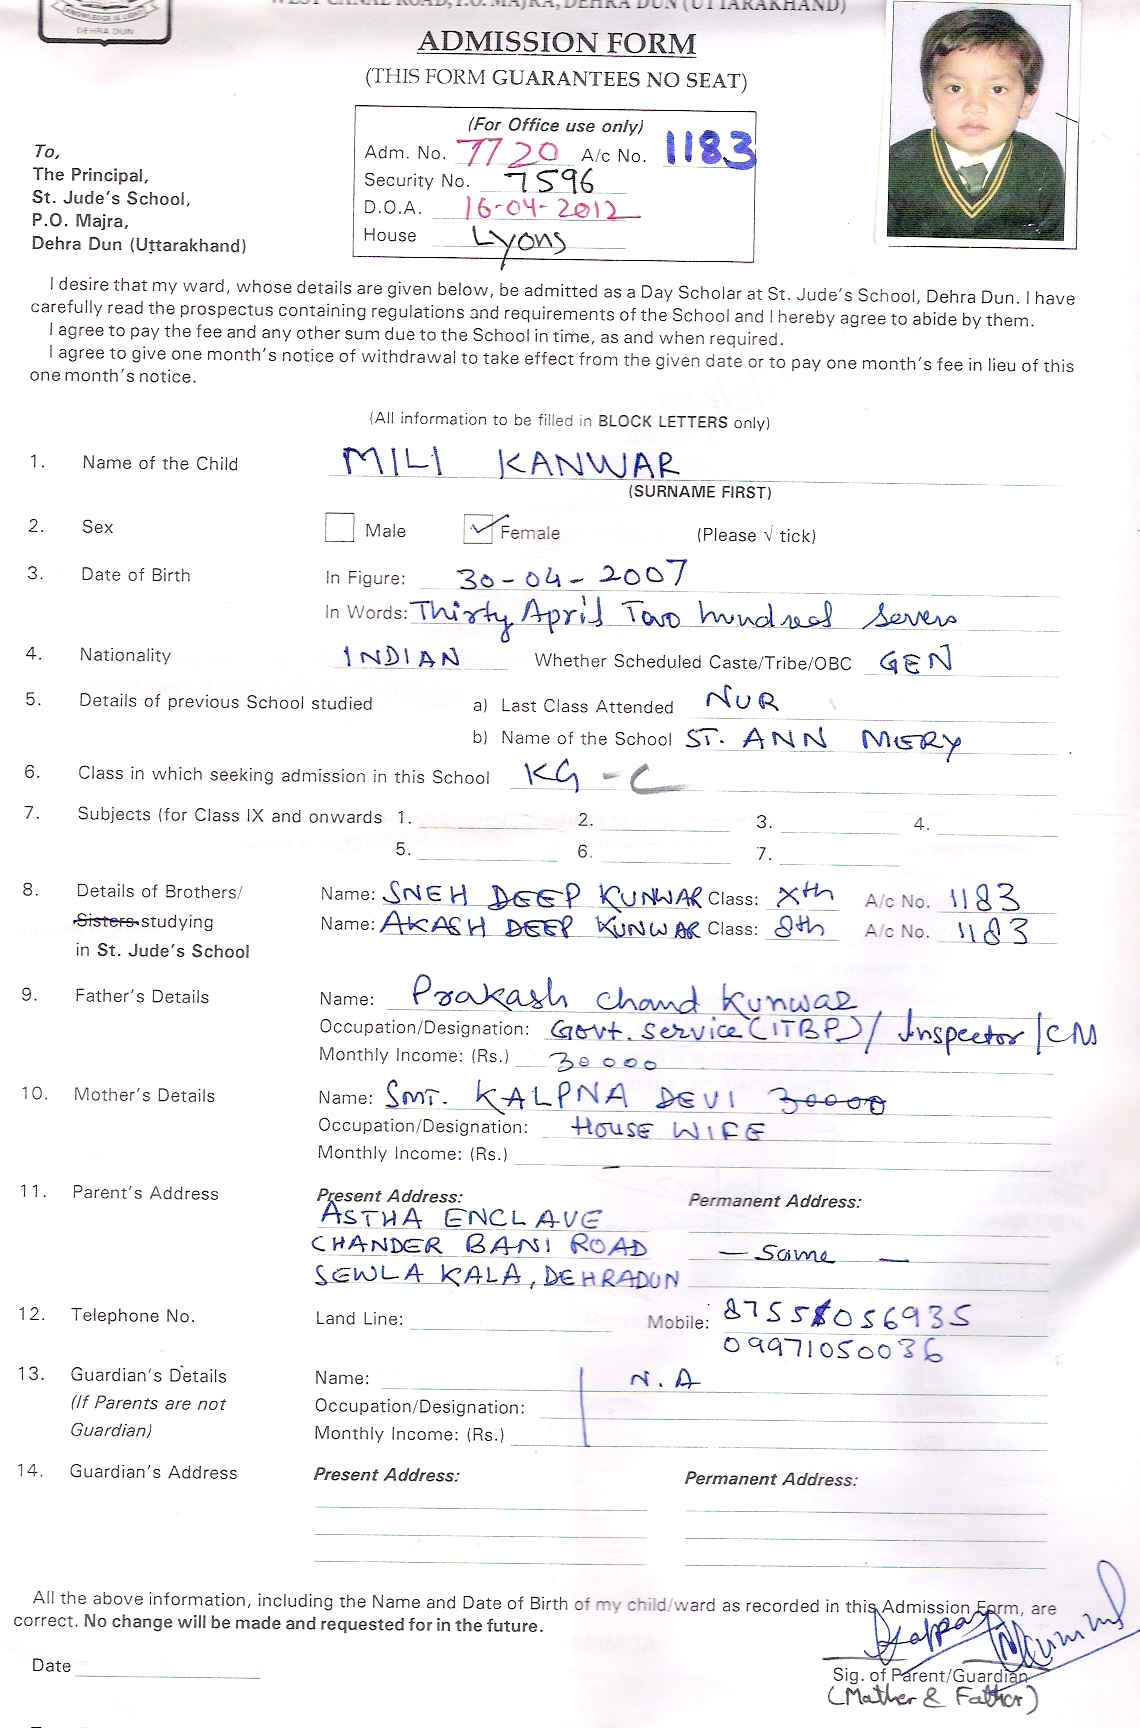 KNOWLEDGE IS LIGHT
DEHRA DUN
WEST CANAL ROAD, P.O. MAJRA, DEHRA DUN (UTTARAKHAND)
ADMISSION FORM
(THIS FORM GUARANTEES NO SEAT)
(For Office use only)
Adm. No. 7720 A/c No. 1183
Security No. 7596
D.O.A. 16-04-2012
House Lyons
To,
The Principal,
St. Jude's School,
P.O. Majra,
Dehra Dun (Uttarakhand)
I desire that my ward, whose details are given below, be admitted as a Day Scholar at St. Jude's School, Dehra Dun. I have
carefully read the prospectus containing regulations and requirements of the School and I hereby agree to abide by them.
I agree to pay the fee and any other sum due to the School in time, as and when required.
I agree to give one month's notice of withdrawal to take effect from the given date or to pay one month's fee in lieu of this
one month's notice.
(All information to be filled in BLOCK LETTERS only)
1. Name of the Child MILI KANWAR
(SURNAME FIRST)
2. Sex Male Female (Please √ tick)
3. Date of Birth In Figure: 30-04-2007
In Words: Thirty April Two hundred Seven
4. Nationality INDIAN Whether Scheduled Caste/Tribe/OBC GEN
5. Details of previous School studied a) Last Class Attended NUR
b) Name of the School ST. ANN MERY
6. Class in which seeking admission in this School KG - C
7. Subjects (for Class IX and onwards 1. 2. 3. 4.
5. 6. 7.
8. Details of Brothers/ Name: SNEH DEEP KUNWAR Class: Xth A/c No. 1183
Sisters studying Name: AKASH DEEP KUNWAR Class: 8th A/c No. 1183
in St. Jude's School
9. Father's Details Name: Prakash Chand Kunwar
Occupation/Designation: Govt. Service (ITBP) / Inspector/CM
Monthly Income: (Rs.) 30000
10. Mother's Details Name: SMT. KALPNA DEVI 30000
Occupation/Designation: HOUSE WIFE
Monthly Income: (Rs.) –
11. Parent's Address Present Address: Permanent Address:
ASTHA ENCLAVE
CHANDER BANI ROAD — Same —
SEWLA KALA, DEHRADUN
12. Telephone No. Land Line: Mobile: 8755056935
09971050036
13. Guardian's Details Name: N.A
(If Parents are not Occupation/Designation:
Guardian) Monthly Income: (Rs.)
14. Guardian's Address Present Address: Permanent Address:
All the above information, including the Name and Date of Birth of my child/ward as recorded in this Admission Form, are
correct. No change will be made and requested for in the future.
Date
Sig. of Parent/Guardian
(Mather & Father)